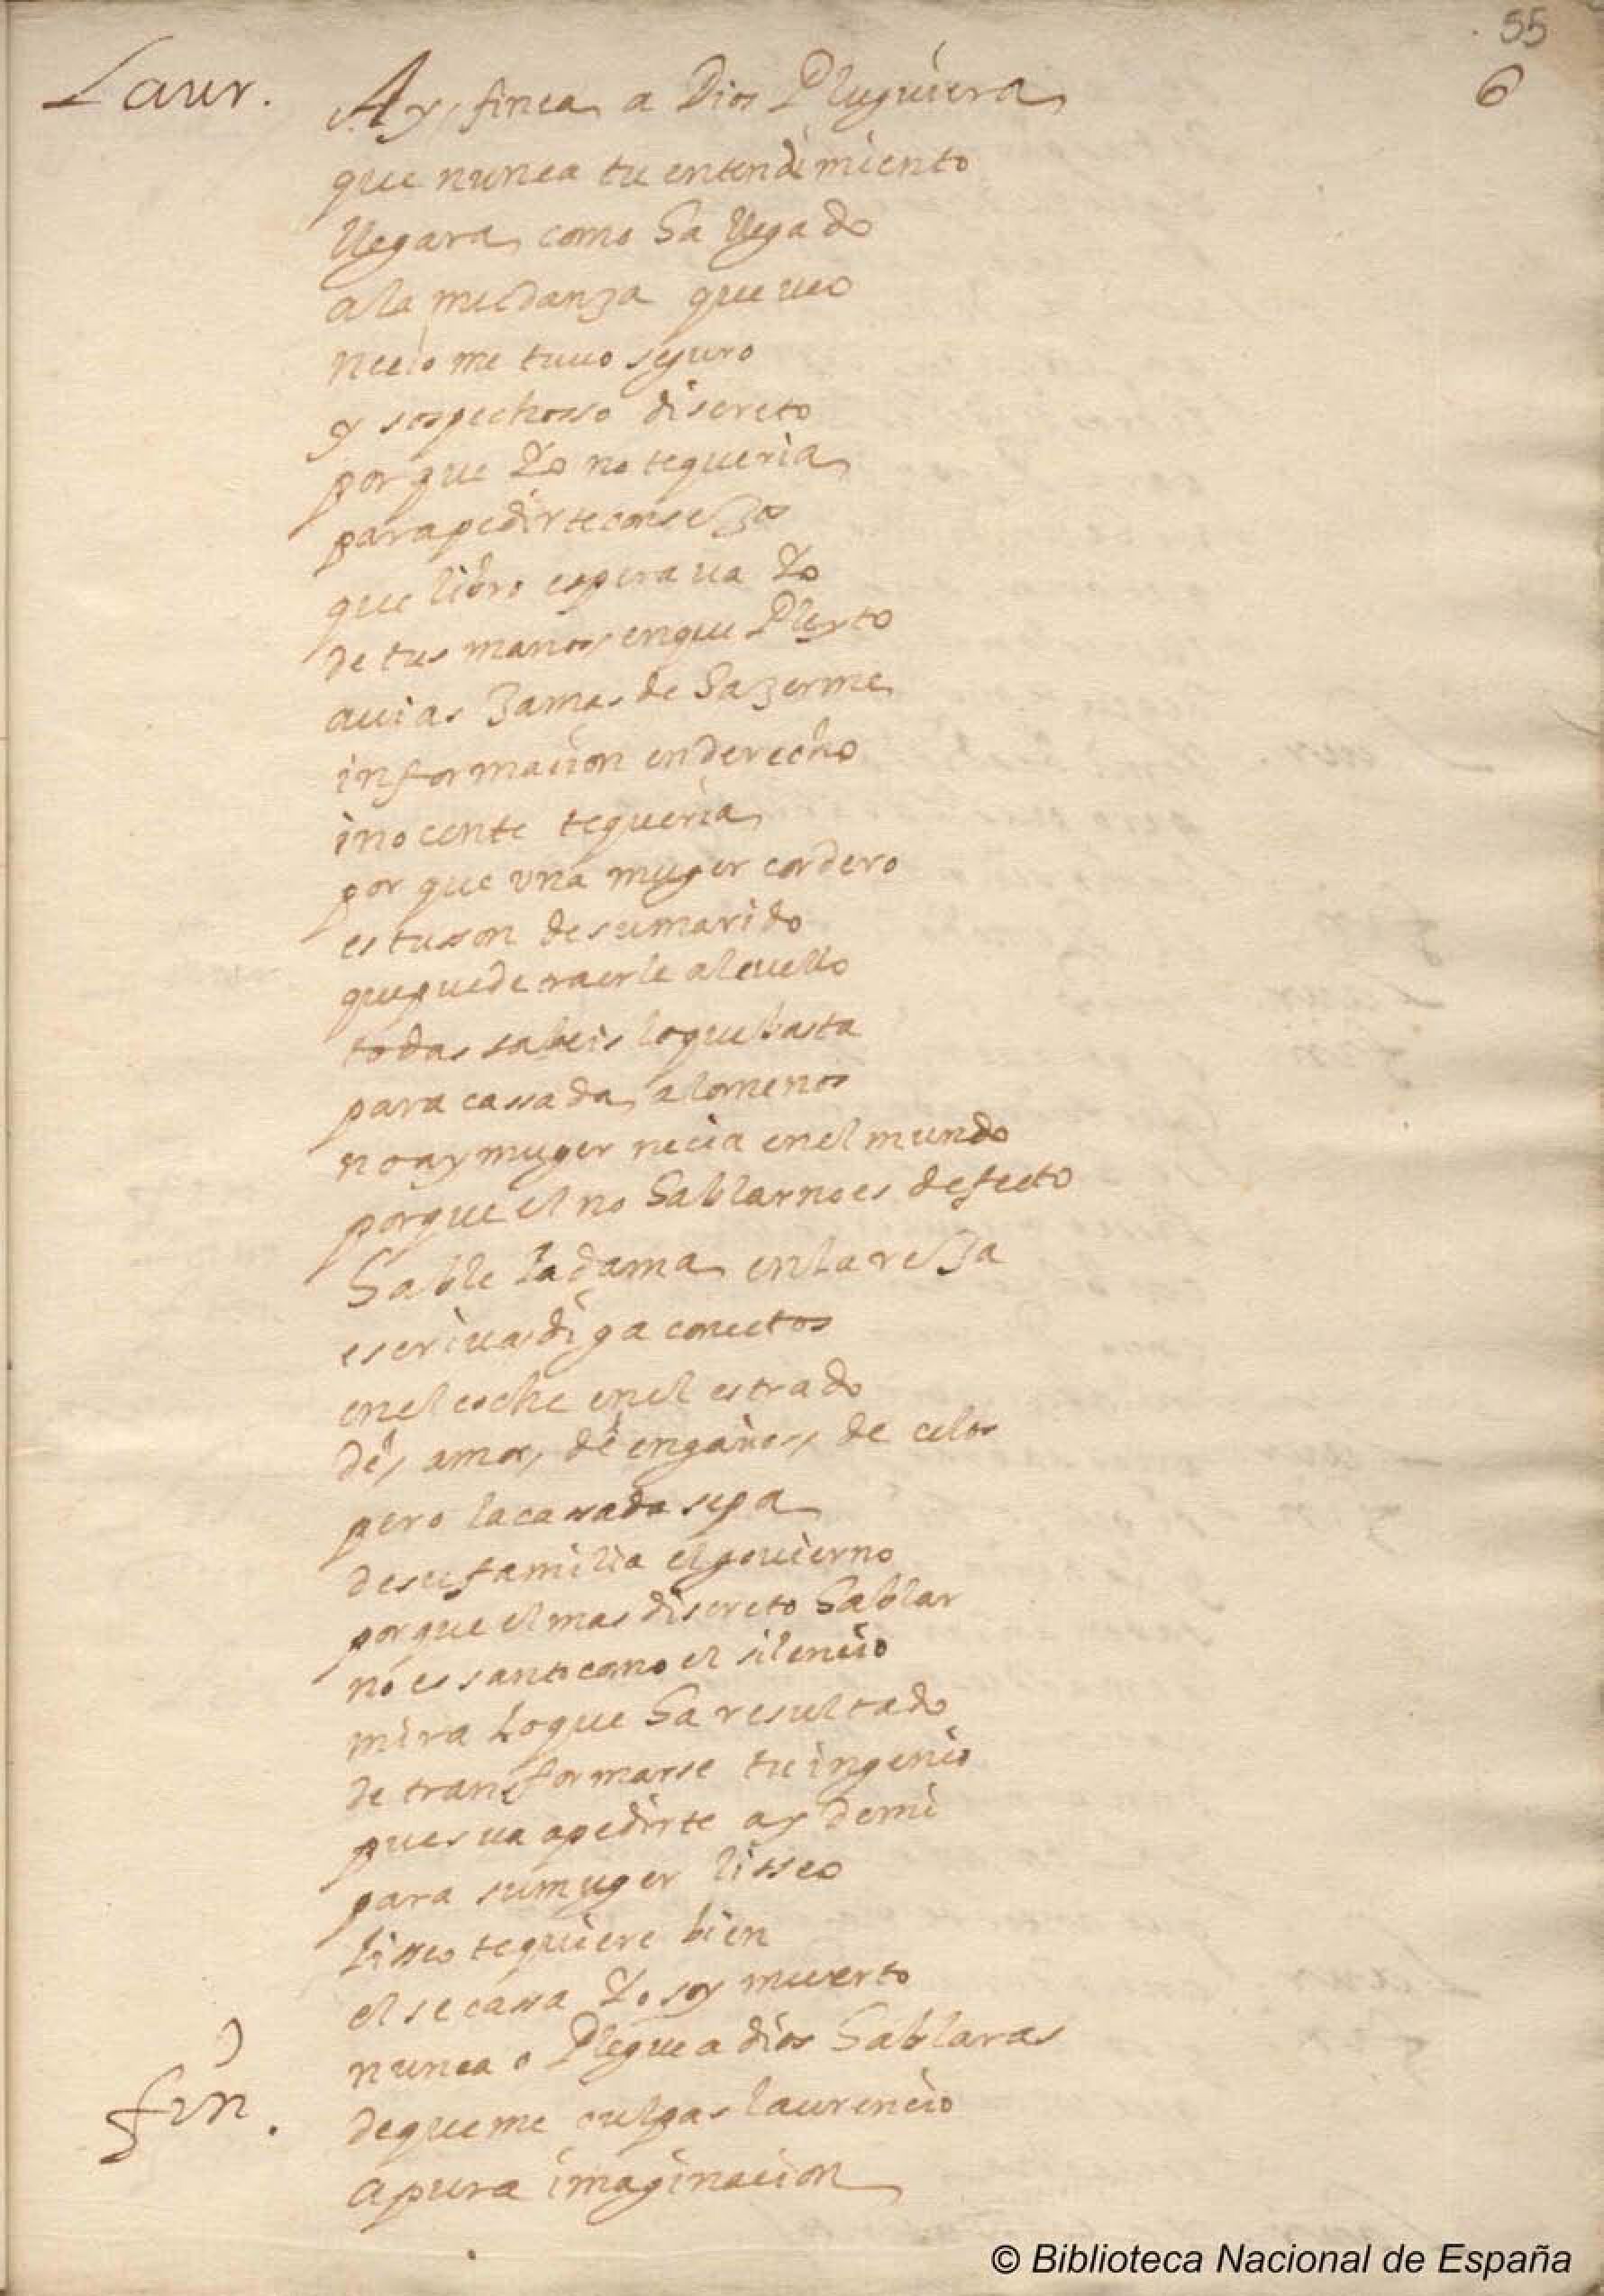 55
6
Laur. Ay finea a Dios Pluguiera
que nunca tu entendimiento
llegara como ha llegado
a la mudanza que veo
necio me tuuo seguro
y sospechosso discreto
por que yo no te queria
para pedirte consejos
que libro esperaua yo
de tus manos en que Pleyto
auias jamas de hazerme
informacion en derecho
inocente te queria
por que vna muger cordero
es tusson de su marido
que puede traerle al cuello
todas sabeis lo que basta
para cassada a lo menos
no ay muger necia en el mundo
porque el no hablar no es defecto
hable la dama en la reja
escriua diga concetos
en el coche en el estrado
de amor, de engaños, de celos
pero la casada sepa
de su familia el gouierno
por que el mas discreto hablar
no es santo como el silencio
mira lo que ha resultado
de transformarse tu ingenio
pues va a pedirte ay de mi
para su muger lisseo
lisseo te quiere bien
el se cassa yo soy muerto
nunca Plegue a dios hablaras
fin. de que me culpas laurencio
a pura imaginacion
© Biblioteca Nacional de España